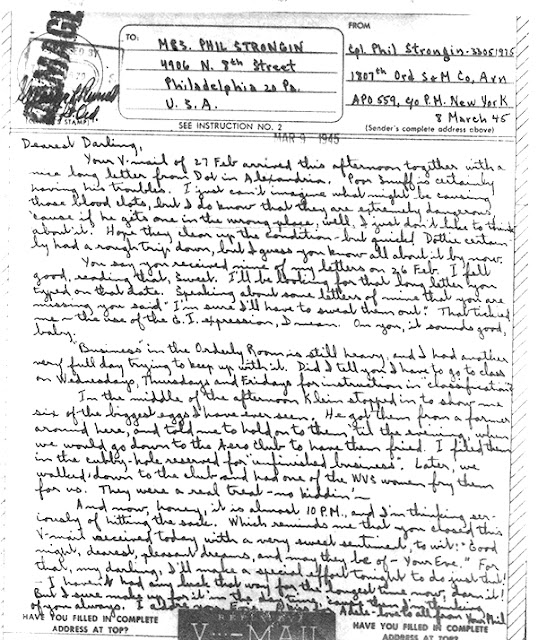 TO:
MRS. PHIL STRONGIN
4906 N. 8th Street
Philadelphia 20 Pa.
U.S.A.
FROM
Cpl. Phil Strongin-33051925
1807th Ord S & M Co, Avn
APO 559, c/o P.M. New York
8 March 45
(Sender's complete address above)
SEE INSTRUCTION NO. 2
MAR 9 1945
Dearest Darling,
Your V-mail of 27 Feb arrived this afternoon together with a
nice long letter from Dot in Alexandria. Poor Snuff is certainly
having his troubles. I just can't imagine what might be causing
those blood clots, but I do know that they are extremely dangerous
'cause if he gets one in the wrong place, well, I just don't like to think
about it. Hope they clear up the condition - but quick! Dottie certain-
ly had a rough trip down, but I guess you know all about it by now.
You say you received nine of my letters on 26 Feb. I felt
good, reading that, Sweet. I'll be looking for that long letter you
typed on that date. Speaking about some letters of mine that you are
missing you said "I'm sure I'll have to sweat them out." That tickled
me - the use of the G.I. expression, I mean. On you, it sounds good,
baby.
"Business" in the Orderly Room is still heavy, and I had another
very full day trying to keep up with it. Did I tell you I have to go to class
on Wednesdays, Thursdays and Fridays for instruction in "classification"
In the middle of the afternoon Klein stopped in to show me
six of the biggest eggs I have ever seen. He got them from a farmer
around here, and told me to hold on to them 'til the evening when
we would go down to the Aero Club to have them fried. I filed them
in the cubby-hole reserved for "unfinished business". Later, we
walked down to the club and had one of the WVS women fry them
for us. They were a real treat - no kiddin'!
And now, honey, it is almost 10 P.M., and I'm thinking ser-
iously of hitting the sack. Which reminds me that you closed this
V-mail received today with a very sweet sentiment, to wit: "Good
night, dearest, pleasant dreams, and may they be of - Your Eve." For
that, my darling, I'll make a special effort tonight to do just that!
- I haven't had any luck that way for the longest time now, darn it!
But I sure make up for it in the daytime, cause I'm thinking
of you always. I adore you, Love to all from Your Phil
HAVE YOU FILLED IN COMPLETE
ADDRESS AT TOP?
V-MAIL
HAVE YOU FILLED IN COMPLETE
ADDRESS AT TOP?